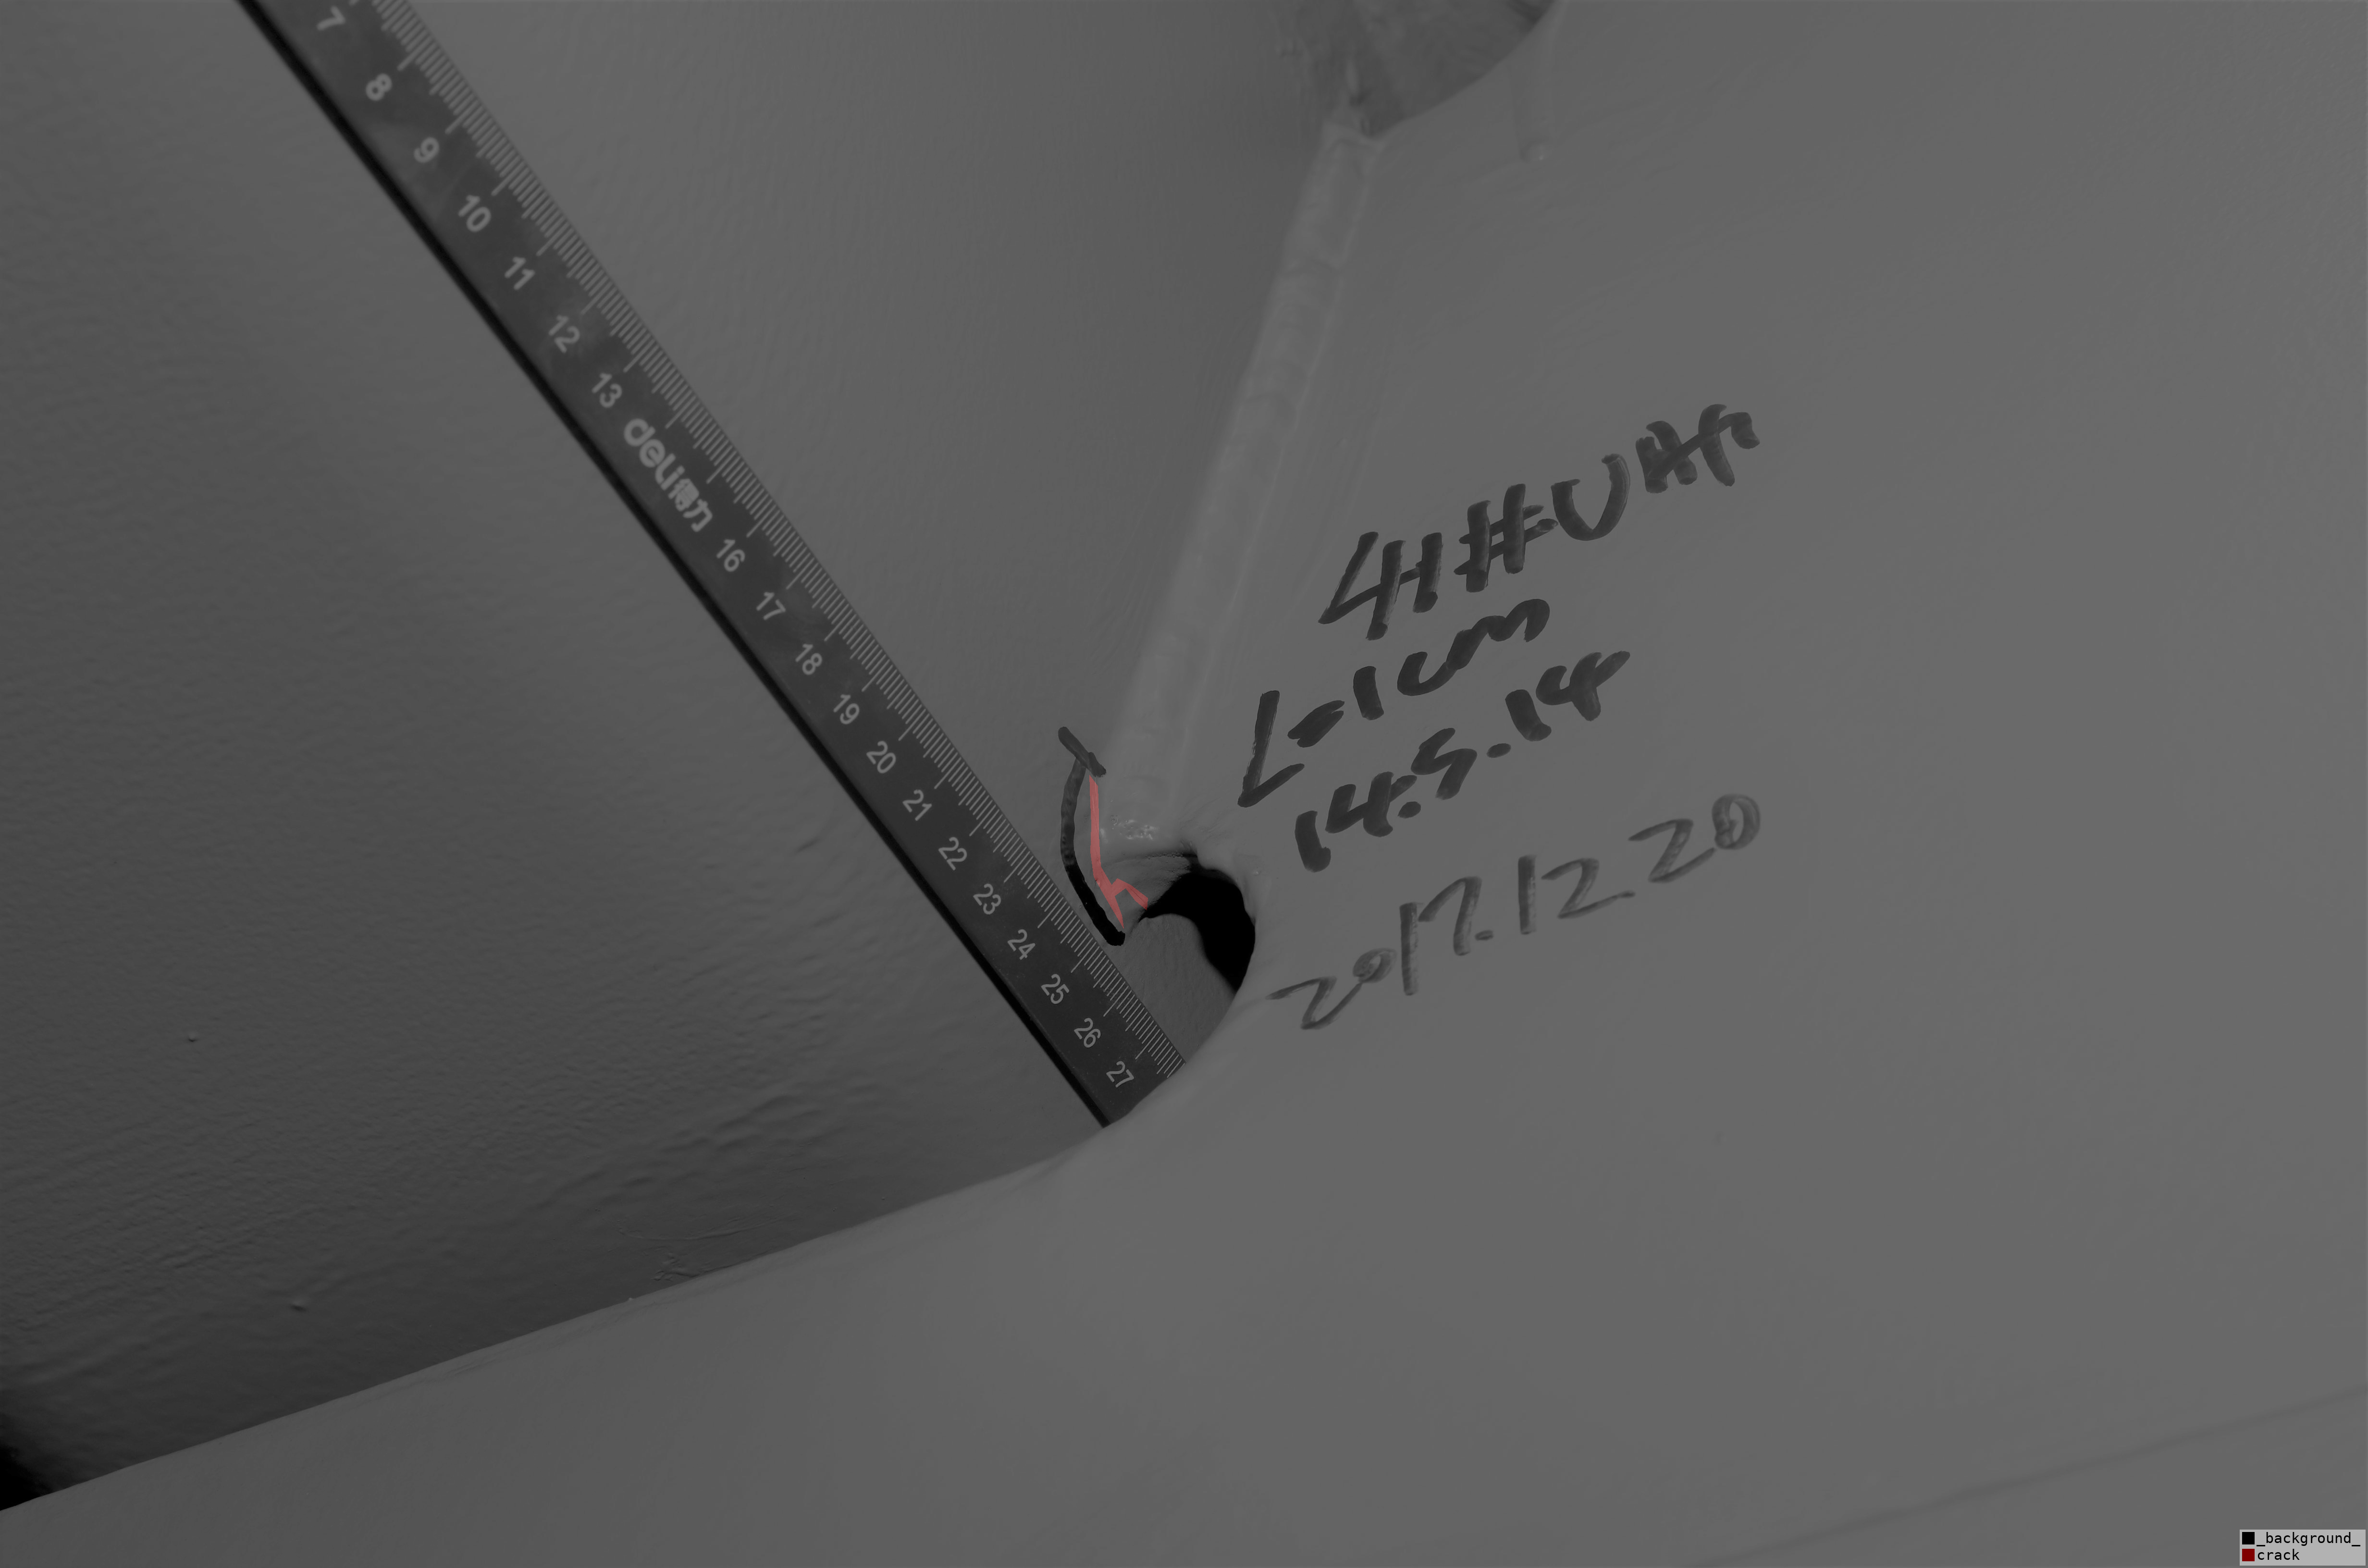 7 8 9 10 11 12 13 deli得力 16 17 18 19 20 21 22 23 24 25 26 27
14.5.14
2017.12.20
_background_
crack